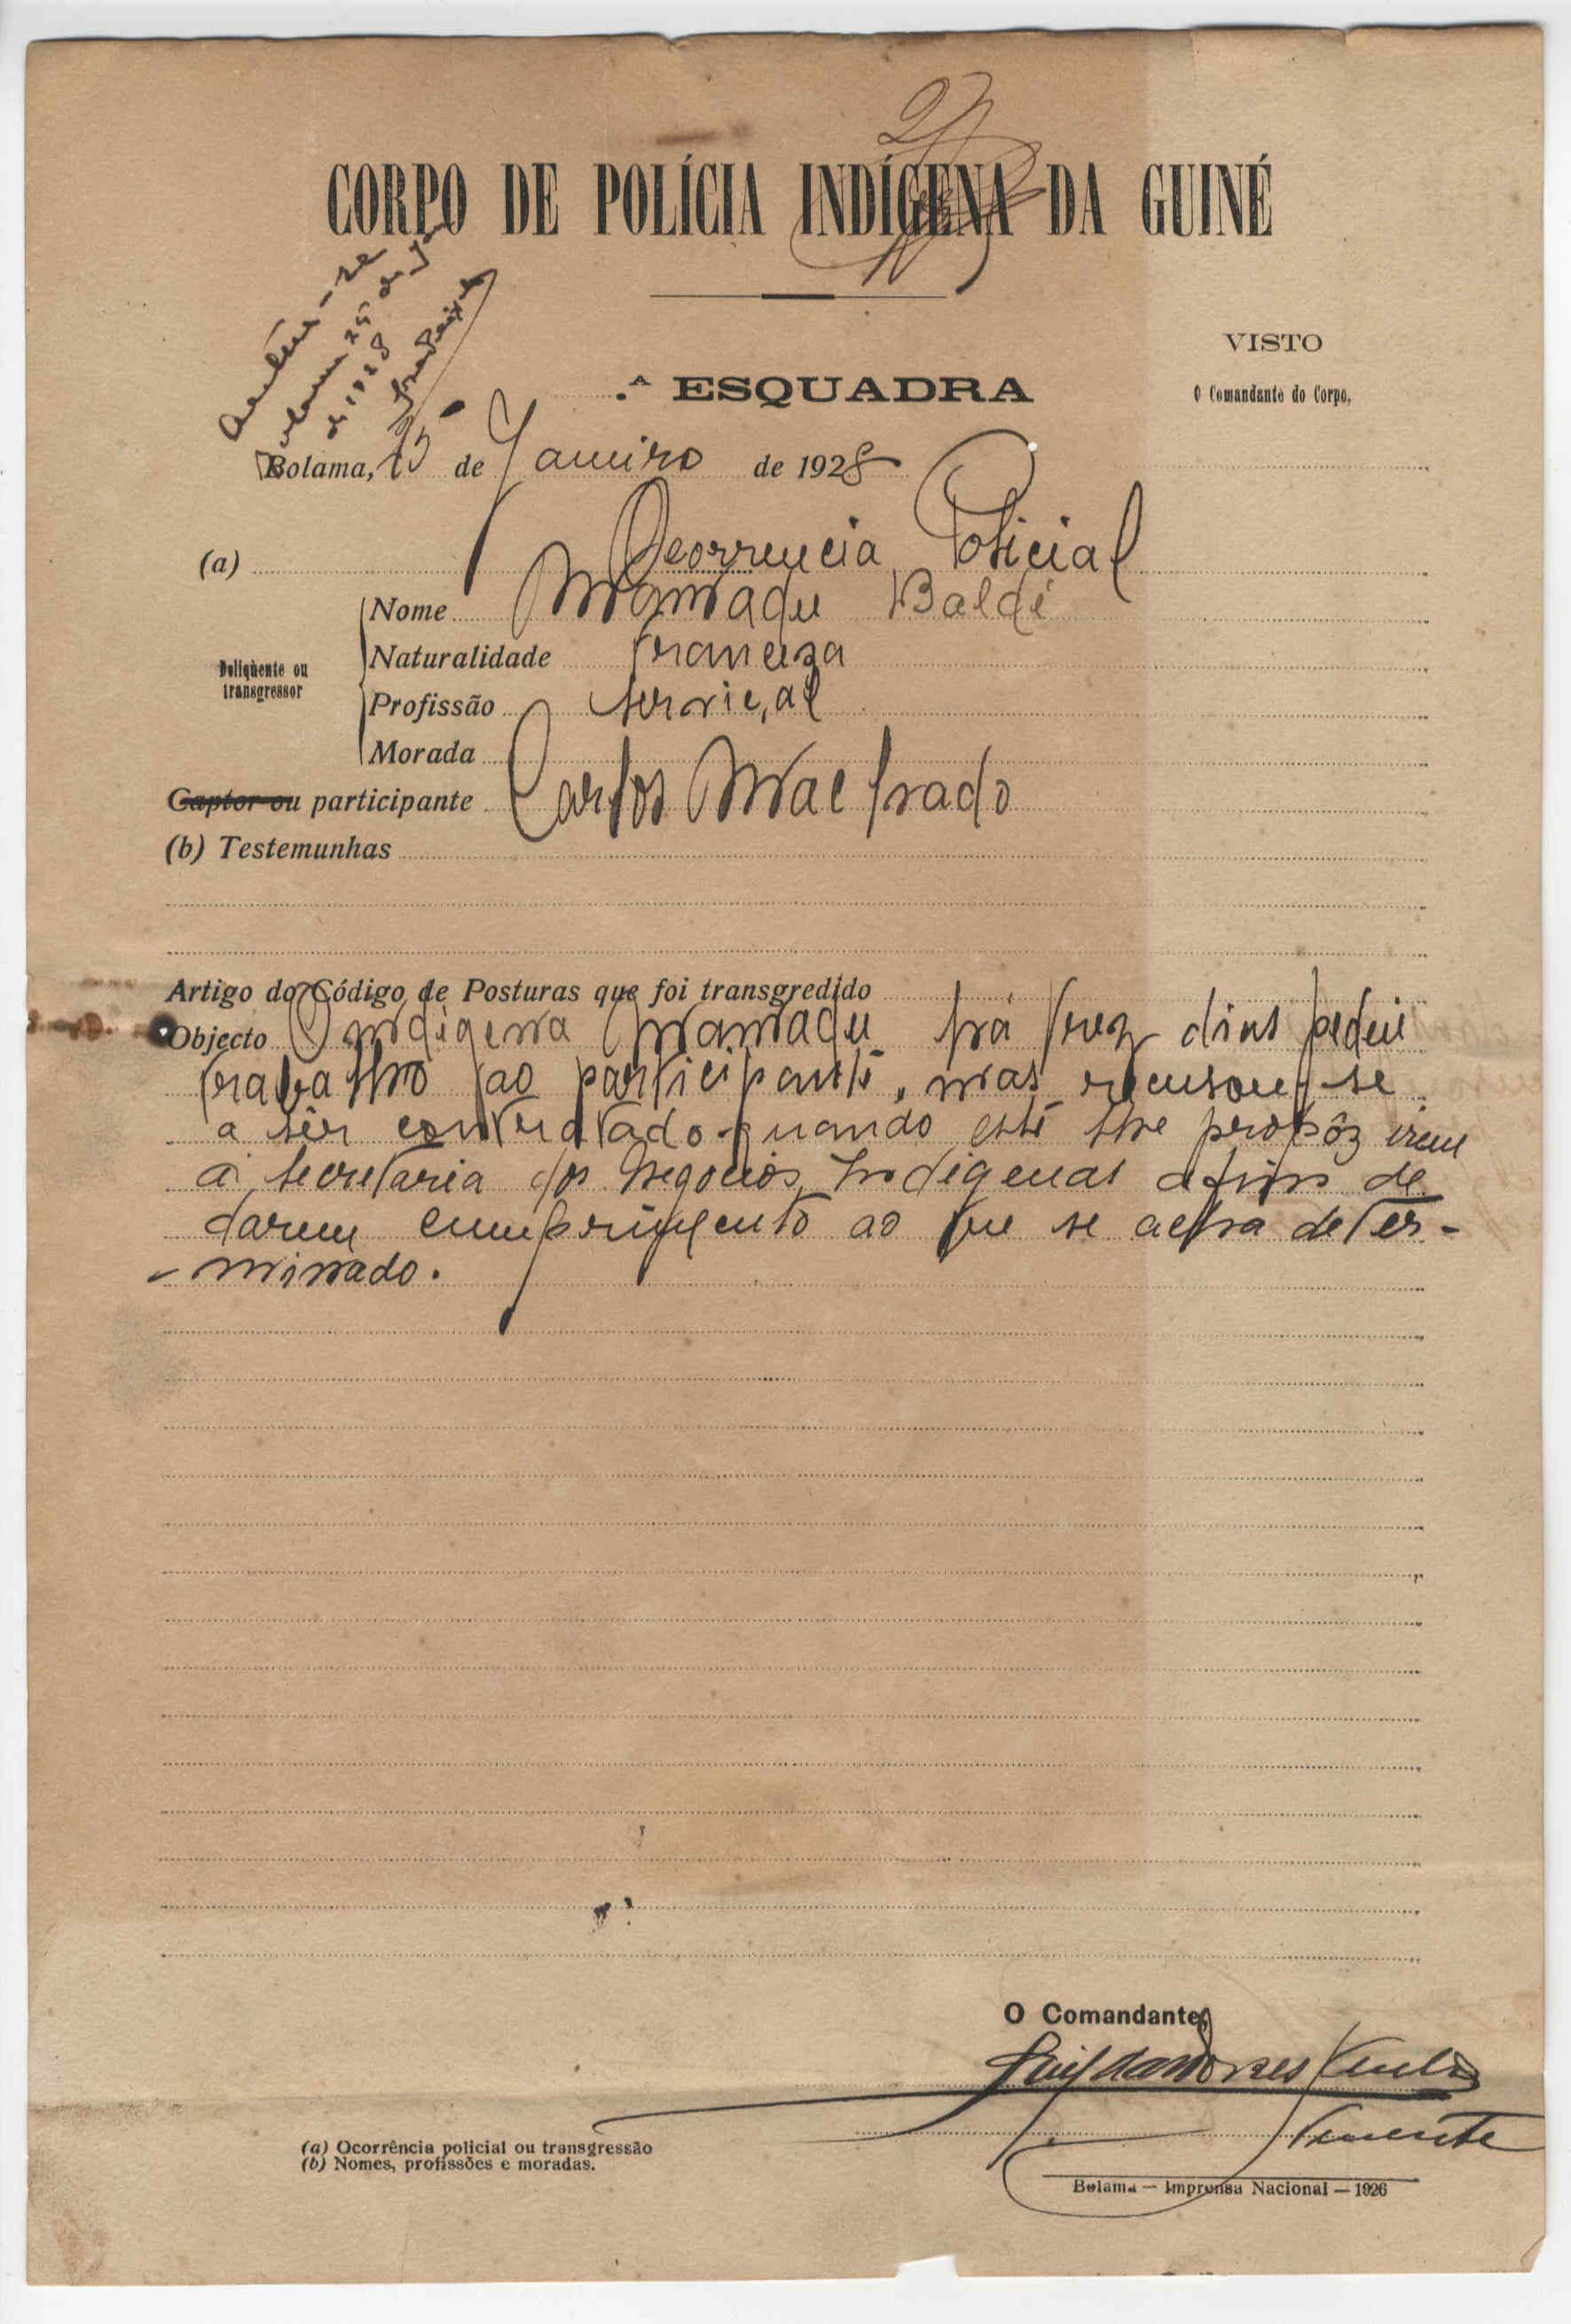 27
CORPO DE POLÍCIA INDÍGENA DA GUINÉ
Bolama 25 de Jº
de 1928
VISTO
.ᴬ ESQUADRA
O Comandante do Corpo,
Bolama, 15 de Janeiro de 1928
(a) Ocorrencia Policial
Nome Mamadu Baldé
Naturalidade franceza
Deliqùente ou transgressor
Profissão serviçal
Morada
Captor ou participante Carlos Machado
(b) Testemunhas
Artigo do Código de Posturas que foi transgredido
Objecto O indigena Mamadu há trez dias pediu
trabalho ao participante, mas recusou-se
a sêr contratado quando este lhe propôz irem
á secretaria dos Negocios Indigenas afim de
darem cumprimento ao que se acha deter-
-minado.
O Comandante,
Tenente
(a) Ocorrência policial ou transgressão
(b) Nomes, profissões e moradas.
Bolama — Imprensa Nacional — 1926